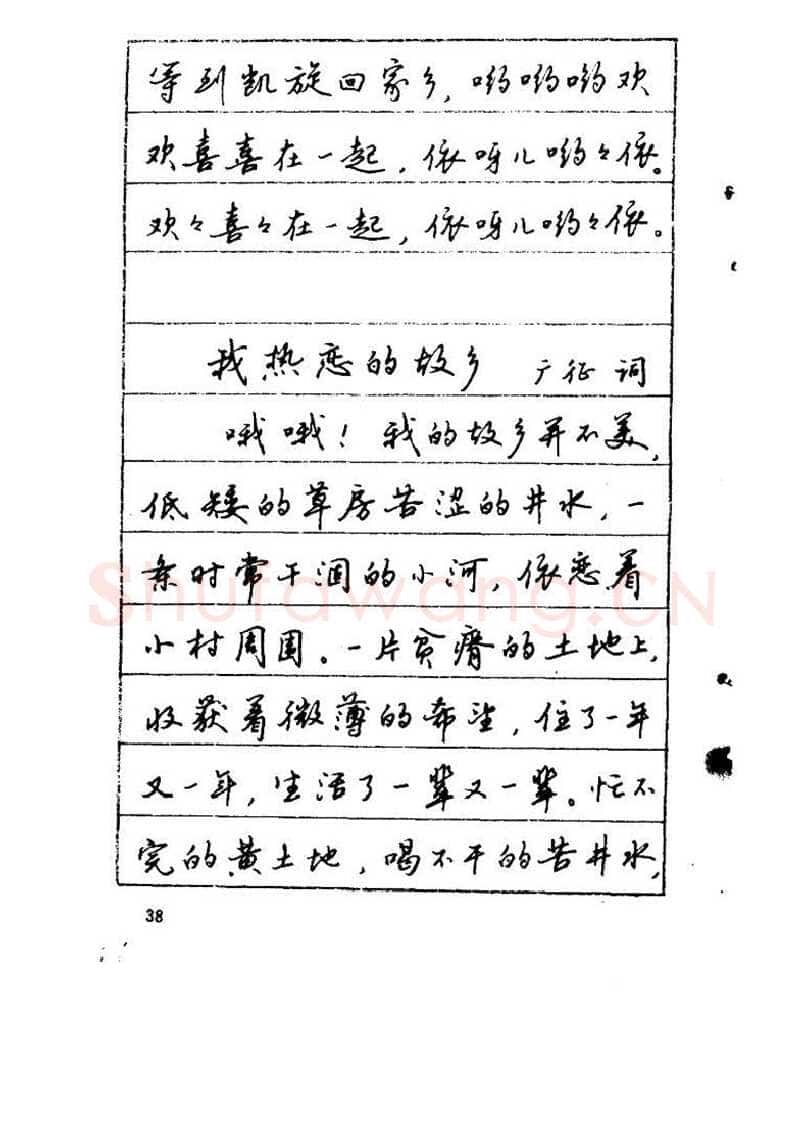 等到凯旋回家乡，哟哟哟欢
欢喜喜在一起，依呀儿哟々依。
欢々喜々在一起，依呀儿哟々依。
我热恋的故乡 广征 词
哦哦！我的故乡并不美，
低矮的草房苦涩的井水，一
条时常干涸的小河，依恋着
小村周围。一片贫瘠的土地上，
收获着微薄的希望，住了一年
又一年，生活了一辈又一辈。忙不
完的黄土地，喝不干的苦井水，
38
Shufawang.CN